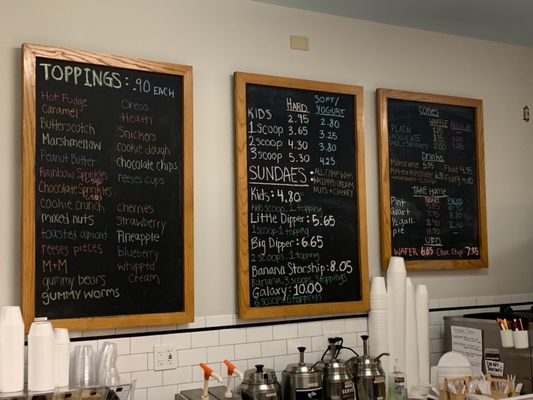 TOPPINGS: .90 EACH
Hot Fudge
Caramel
Butterscotch
Marshmellow
Peanut Butter
Rainbow Sprinkles
Chocolate Sprinkles
cookie crunch
mixed nuts
toasted almond
reeses pieces
M+M
gummy bears
gummy worms
Oreos
Heath
Snickers
cookie dough
chocolate chips
reeses cups
cherries
strawberry
Pineapple
blueberry
whipped cream
HARD SOFT/YOGURT
KIDS 2.95 2.80
1 scoop 3.65 3.25
2 scoop 4.50 3.80
3 scoop 5.30 4.25
SUNDAES: ALL COME WITH
WHIPPED CREAM
NUTS + CHERRY
Kids: 4.80
Kids scoop, 1 topping
Little Dipper: 5.65
1 scoop 1 topping
Big Dipper: 6.65
2 scoops, 1 topping
Banana Starship: 8.05
3 scoops, 3 toppings
Galaxy: 10.00
6 scoops 6 toppings
CONES
WAFFLE REGULAR
PLAIN
Drinks
Milkshake 5.55 Float
TAKE HOME
HARD
Pint
Quart
1/2 gal
pie
UFO
WAFER 6.65 Choc Chip 7.35